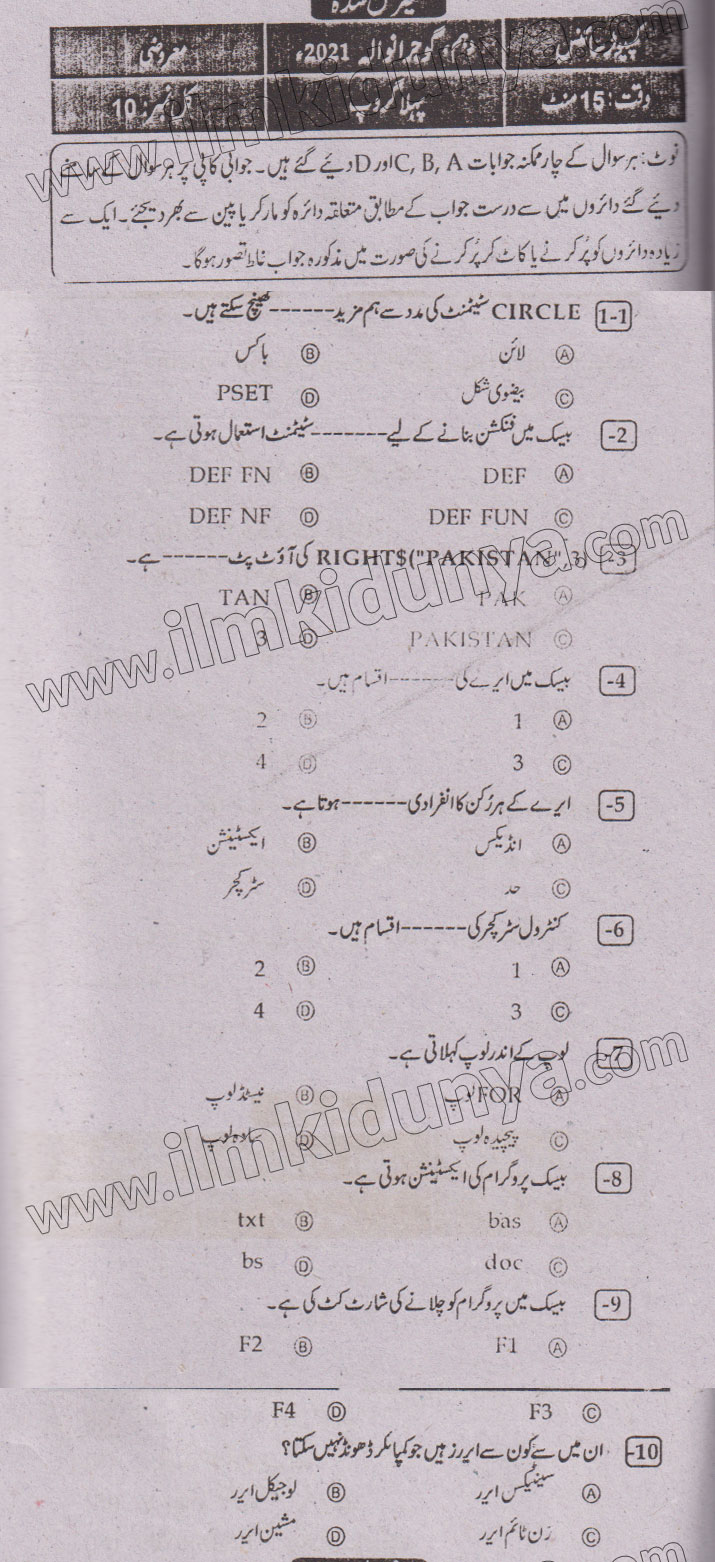 کمپیوٹر سائنس دہم، گوجرانوالہ 2021ء معروضی
وقت: 15 منٹ پہلا گروپ کل نمبر: 10
نوٹ: ہر سوال کے چار ممکنہ جوابات C, B, A اور D دیئے گئے ہیں۔ جوابی کاپی پر ہر سوال کے سامنے
دیئے گئے دائروں میں سے درست جواب کے مطابق متعلقہ دائرہ کو مارکر یا پین سے بھر دیجئے۔ ایک سے
زیادہ دائروں کو پُر کرنے یا کاٹ کر پُر کرنے کی صورت میں مذکورہ جواب غلط تصور ہوگا۔
1-1 CIRCLE سٹیٹمنٹ کی مدد سے ہم مزید ------ کھینچ سکتے ہیں۔
Ⓐ لائن Ⓑ باکس
Ⓒ بیضوی شکل Ⓓ PSET
-2 بیسک میں فنکشن بنانے کے لیے ------- سٹیٹمنٹ استعمال ہوتی ہے۔
Ⓐ DEF Ⓑ DEF FN
Ⓒ DEF FUN Ⓓ DEF NF
-3 RIGHT$("PAKISTAN",3) کی آؤٹ پٹ ------ ہے۔
Ⓐ PAK Ⓑ TAN
Ⓒ PAKISTAN Ⓓ 3
-4 بیسک میں ایرے کی ------- اقسام ہیں۔
Ⓐ 1 Ⓑ 2
Ⓒ 3 Ⓓ 4
-5 ایرے کے ہر رُکن کا انفرادی ------ ہوتا ہے۔
Ⓐ انڈیکس Ⓑ ایکسٹینشن
Ⓒ حد Ⓓ سٹرکچر
-6 کنٹرول سٹرکچر کی ------ اقسام ہیں۔
Ⓐ 1 Ⓑ 2
Ⓒ 3 Ⓓ 4
-7 لوپ کے اندر لوپ کہلاتی ہے۔
Ⓐ FOR لوپ Ⓑ نیسٹڈ لوپ
Ⓒ پیچیدہ لوپ Ⓓ سادہ لوپ
-8 بیسک پروگرام کی ایکسٹینشن ہوتی ہے۔
Ⓐ bas Ⓑ txt
Ⓒ doc Ⓓ bs
-9 بیسک میں پروگرام کو چلانے کی شارٹ کٹ کی ہے۔
Ⓐ F1 Ⓑ F2
Ⓒ F3 Ⓓ F4
-10 ان میں سے کون سے ایررز ہیں جو کمپائلر ڈھونڈ نہیں سکتا؟
Ⓐ سینٹیکس ایرر Ⓑ لوجیکل ایرر
Ⓒ رَن ٹائم ایرر Ⓓ مشین ایرر
www.ilmkidunya.com
www.ilmkidunya.com
www.ilmkidunya.com